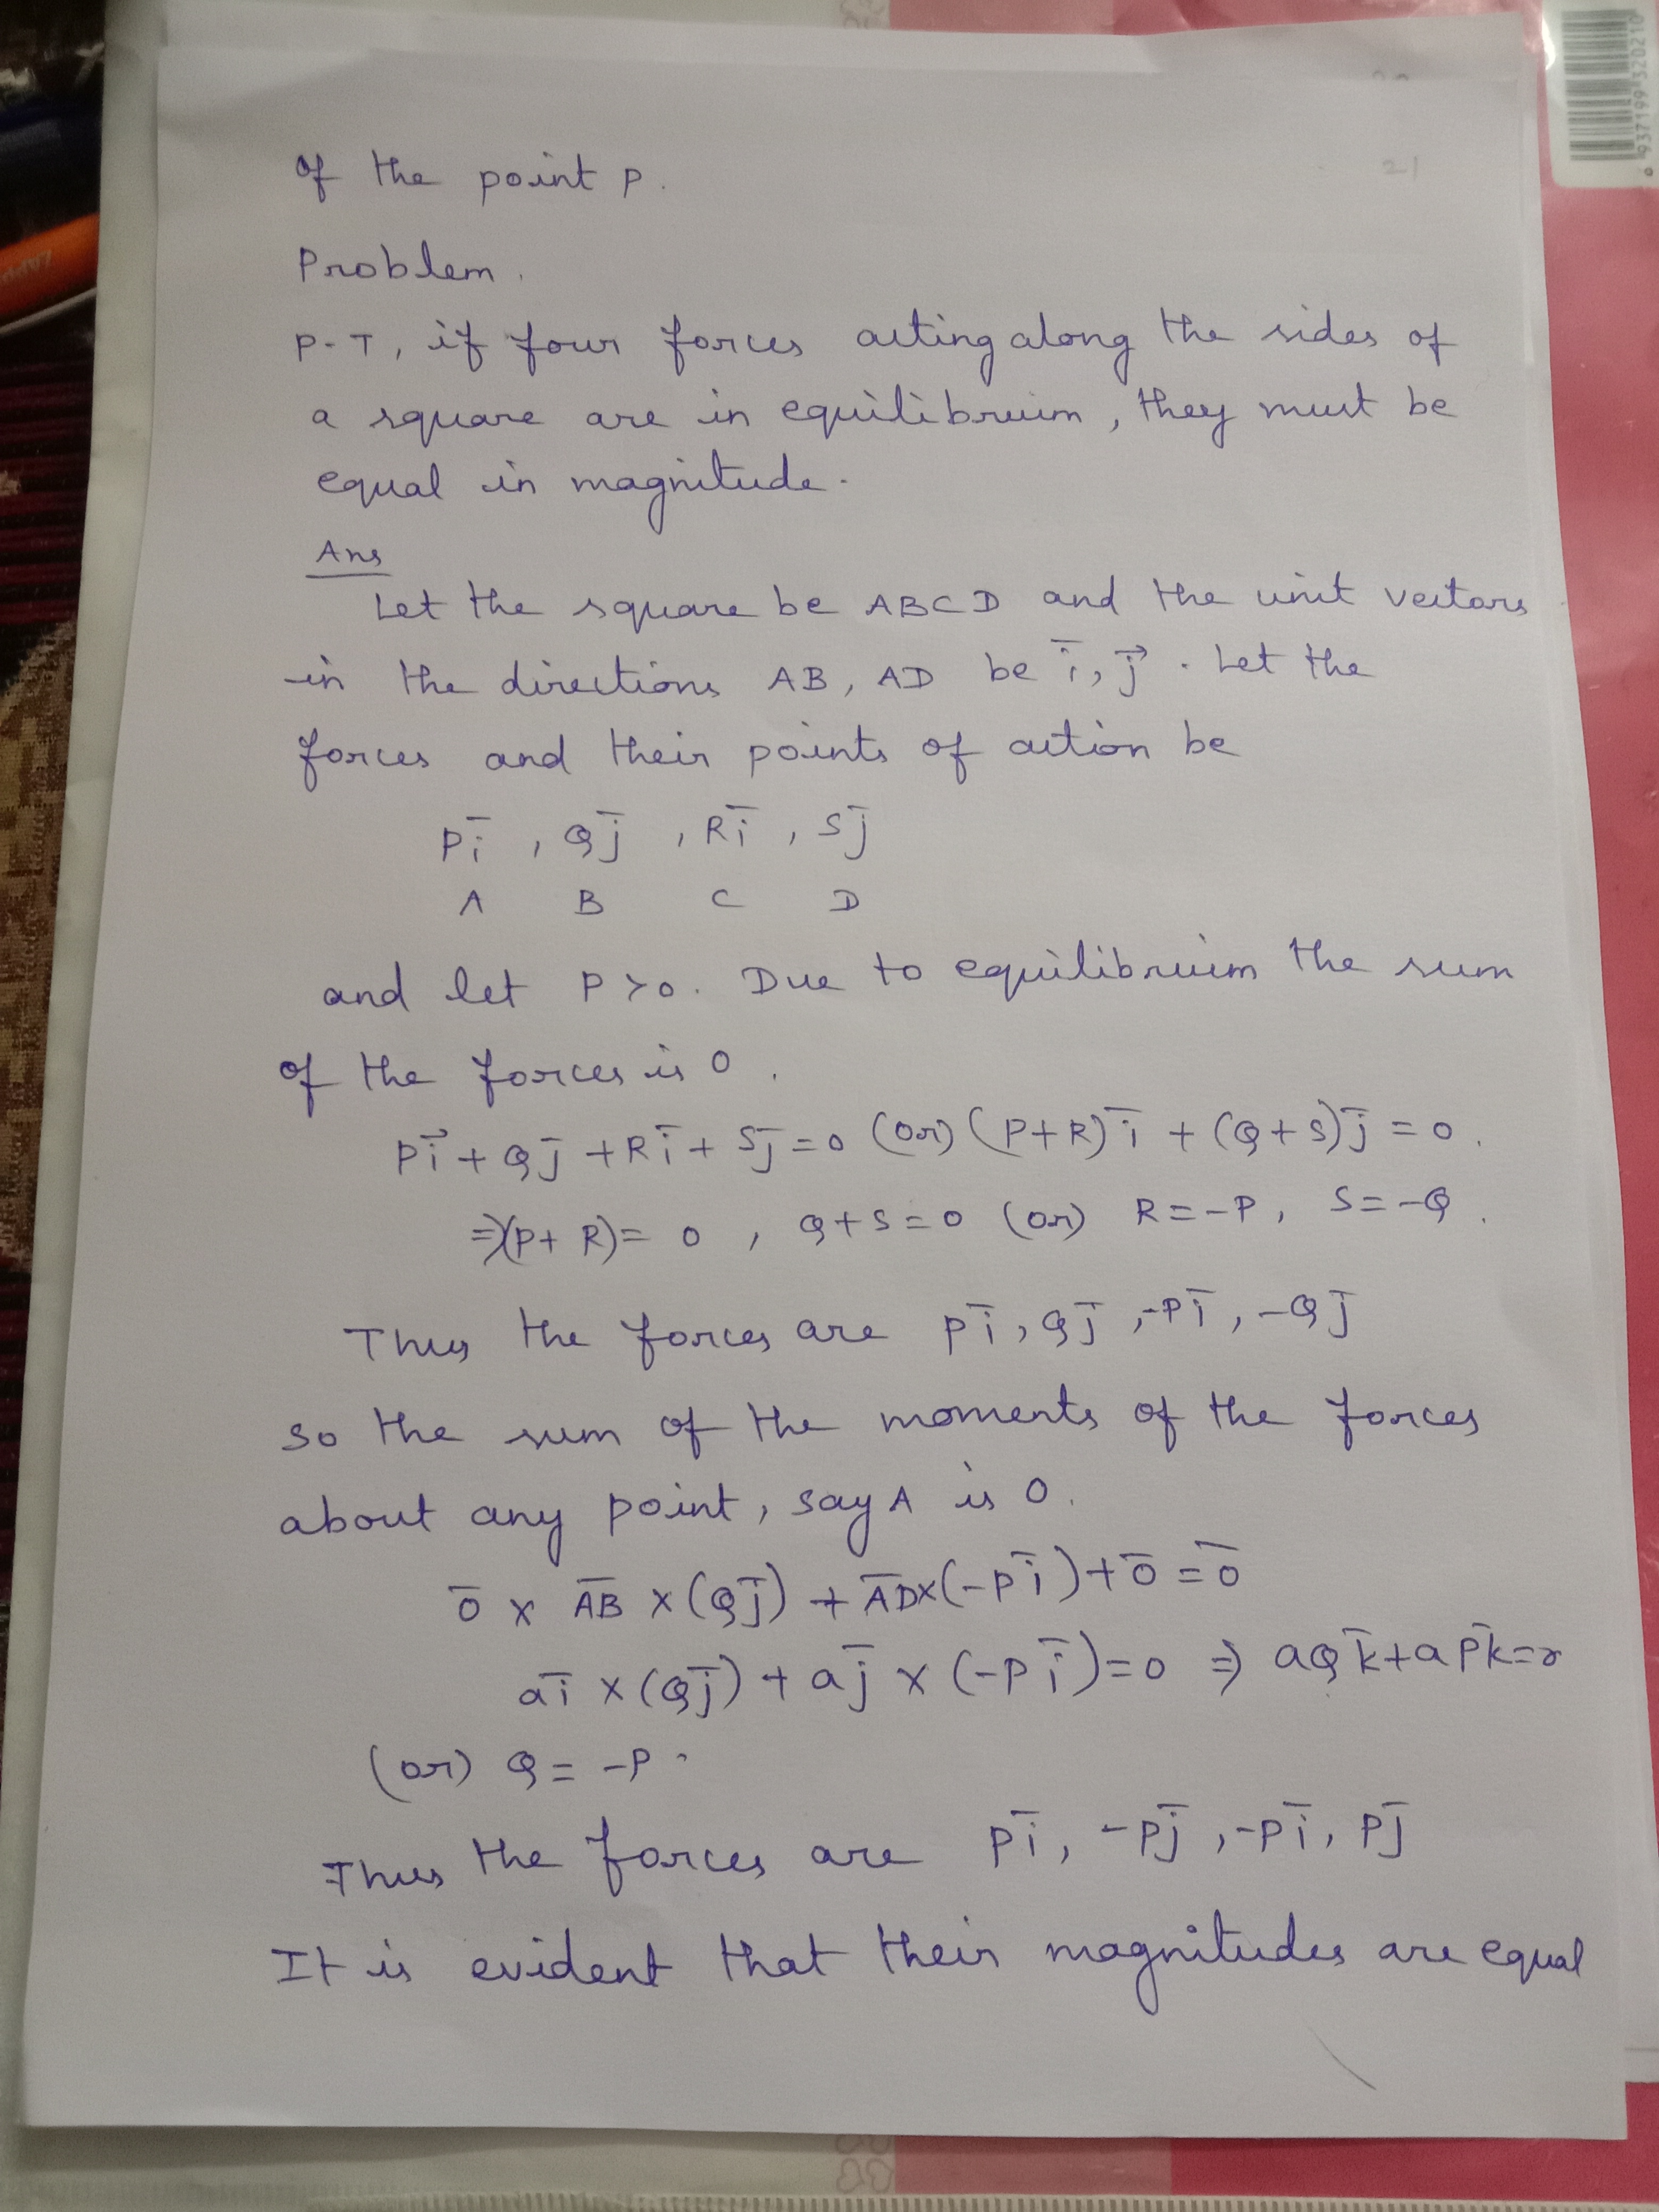 21
of the point P.
Problem.
P.T, if four forces acting along the sides of
a square are in equilibrium, they must be
equal in magnitude.
Ans
Let the square be ABCD and the unit vectors
in the directions AB, AD be i̅, j⃗. Let the
forces and their points of action be
Pi̅, Qj̅, Ri̅, Sj̅
A B C D
and let P>0. Due to equilibrium the sum
of the forces is 0.
Pi⃗ + Qj̅ + Ri̅ + Sj̅ = 0 (or) (P+R)i̅ + (Q+S)j̅ = 0.
⇒(P+R) = 0, Q+S=0 (or) R=-P, S=-Q.
Thus the forces are Pi̅, Qj̅, -Pi̅, -Qj̅
So the sum of the moments of the forces
about any point, say A is 0.
0̅ x A̅B̅ x (Qj̅) + A̅D̅x(-Pi̅)+0̅ = 0̅
ai̅ x (Qj̅) + aj̅ x (-Pi̅)=0 ⇒ aQk̅+aPk̅=
(or) Q = -P.
Thus the forces are Pi̅, -Pj̅, -Pi̅, Pj̅
It is evident that their magnitudes are equal
9 937199 320210